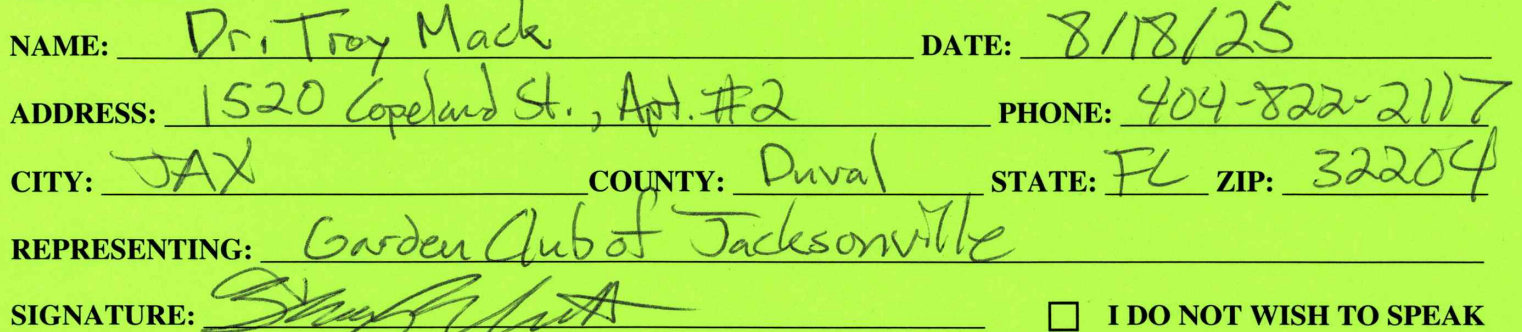 NAME: Dr. Troy Mack DATE: 8/18/25
ADDRESS: 1520 Copeland St., Apt. #2 PHONE: 404-822-2117
CITY: JAX COUNTY: Duval STATE: FL ZIP: 32204
REPRESENTING: Garden Club of Jacksonville
SIGNATURE: I DO NOT WISH TO SPEAK